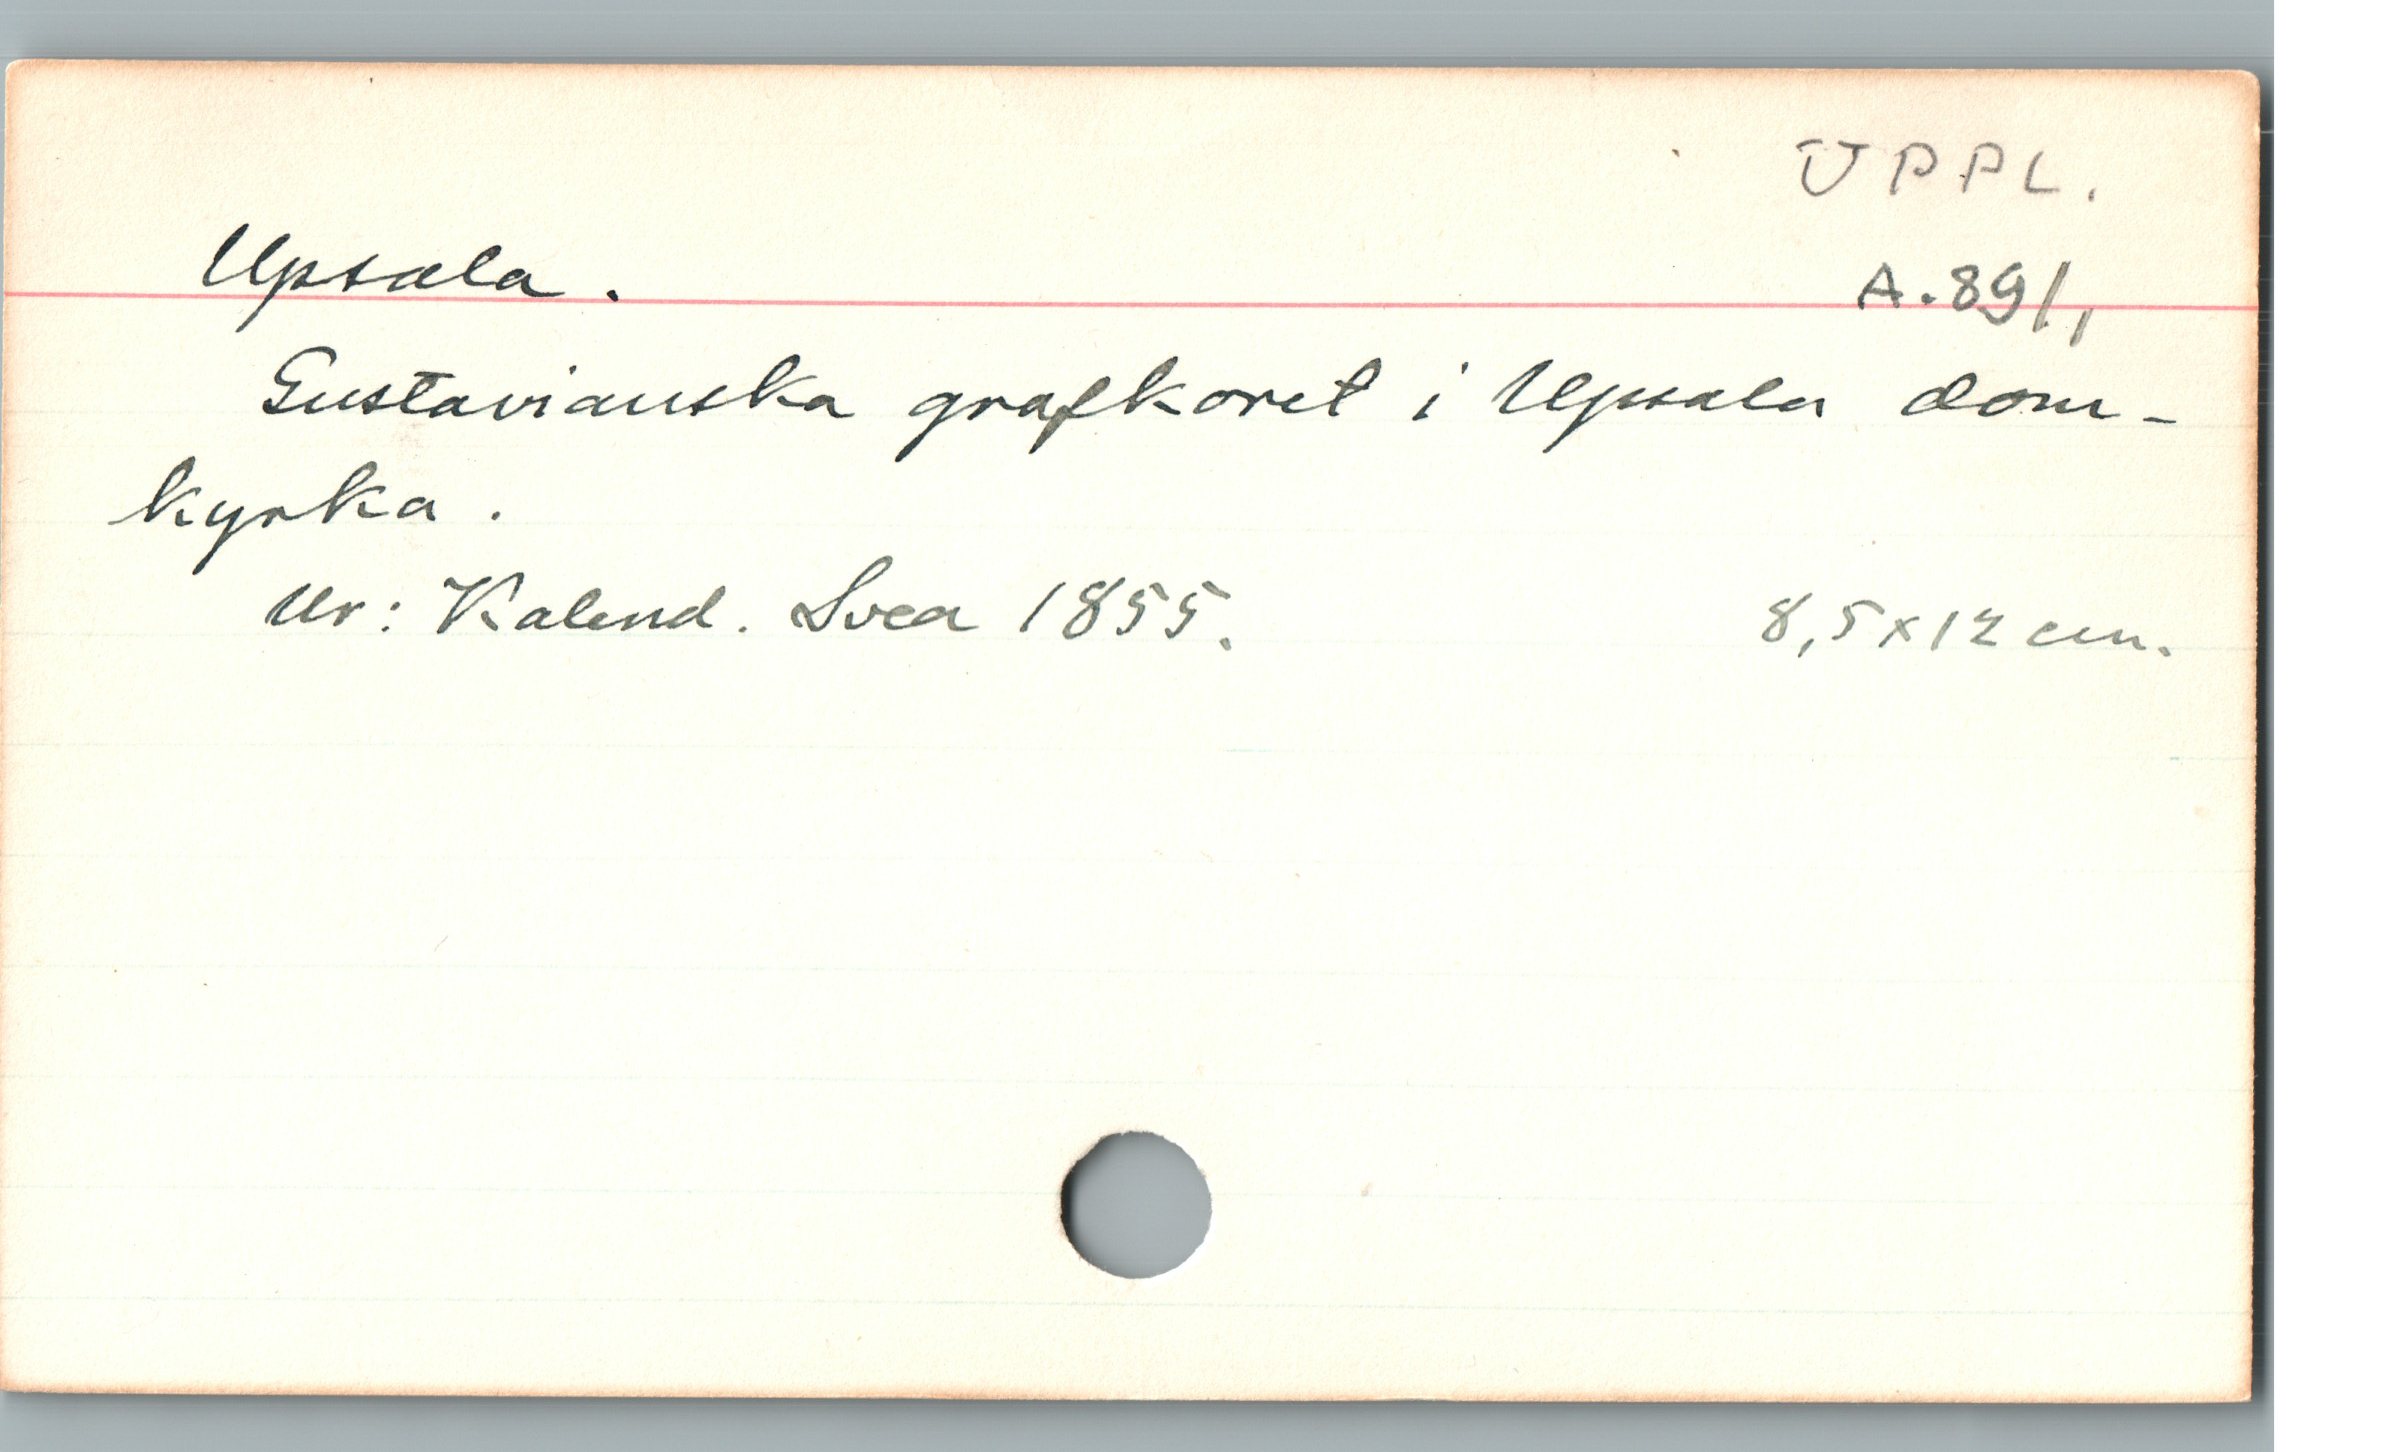 UPPL.
Upsala.
A.89/1
Gustavianska grafkoret i Upsala dom-
kyrka.
Ur: Kalend. Svea 1855. 8,5x12 cm.